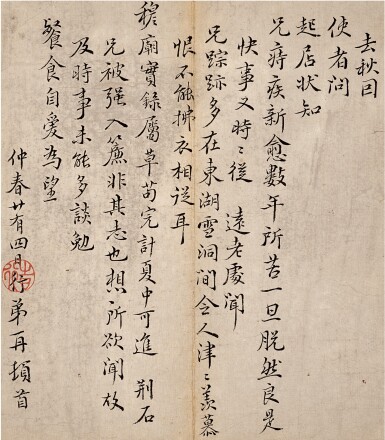 去秋回
使者問
起居狀知
兄痔疾新愈數年所苦一旦脫然良是
快事又時〻從 遠老處聞
兄踪跡多在東湖雪洞間令人津〻羨慕
恨不能拂衣相從耳
穆廟實錄屬草苗完計夏中可進 荆石
兄被强入簾非其志也想所欲聞故
及時事未能多談勉
餐食自愛為望
仲春廿有四日行弟再頓首